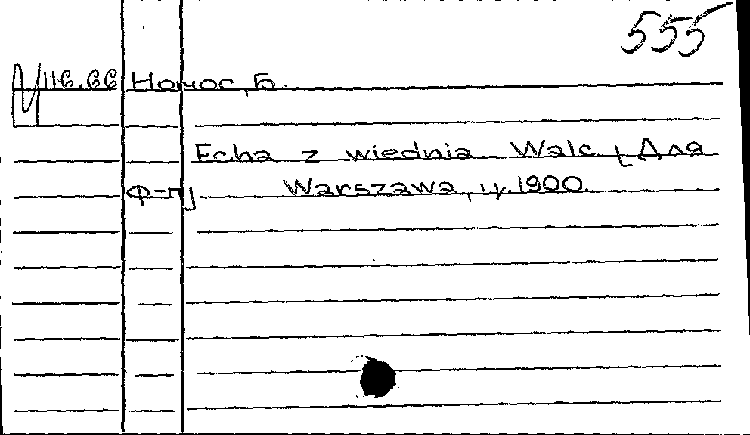 555
У116.66 Номос, Б.
Echa z wiednia Walc. [Для
ф-п] Warszawa, ц. 1900.